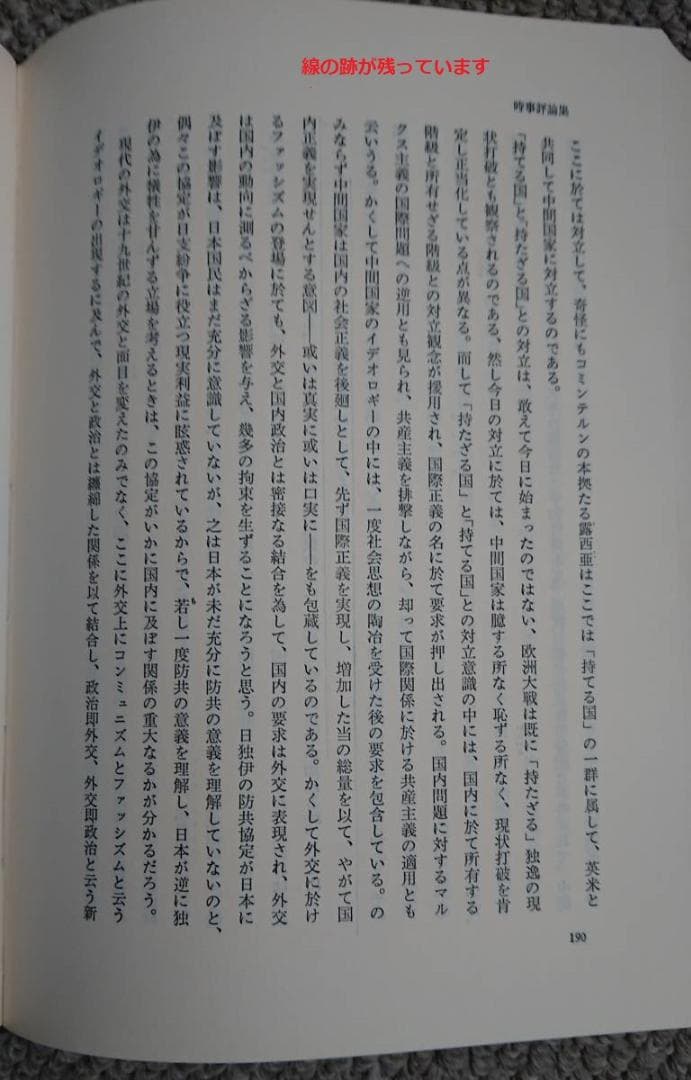 線の跡が残っています
時事評論集
ここに於ては対立して、奇怪にもコミンテルンの本拠たる露西亜はここでは「持てる国」の一群に属して、英米と
共同して中間国家に対立するのである。
「持てる国」と「持たざる国」との対立は、敢えて今日に始まったのではない、欧洲大戦は既に「持たざる」独逸の現
状打破とも観察されるのである、然し今日の対立に於ては、中間国家は臆する所なく恥ずる所なく、現状打破を肯
定し正当化している点が異なる。而して「持たざる国」と「持てる国」との対立意識の中には、国内に於て所有する
階級と所有せざる階級との対立観念が援用され、国際正義の名に於て要求が押し出される。国内問題に対するマル
クス主義の国際問題への逆用とも見られ、共産主義を排撃しながら、却って国際関係に於ける共産主義の適用とも
云いうる。かくして中間国家のイデオロギーの中には、一度社会思想の陶冶を受けた後の要求を包含している。の
みならず中間国家は国内の社会正義を後廻しとして、先ず国際正義を実現し、増加した当の総量を以て、やがて国
内正義を実現せんとする意図――或いは真実に或いは口実に――をも包蔵しているのである。かくして外交に於け
るファッシズムの登場に於ても、外交と国内政治とは密接なる結合を為して、国内の要求は外交に表現され、外交
は国内の動向に測るべからざる影響を与え、幾多の拘束を生ずることになろうと思う。日独伊の防共協定が日本に
及ぼす影響は、日本国民はまだ充分に意識していないが、之は日本が未だ充分に防共の意義を理解していないのと、
偶々この協定が日支紛争に役立つ現実利益に眩惑されているからで、若し一度防共の意義を理解し、日本が逆に独
伊の為に犠牲を甘んずる立場を考えるときは、この協定がいかに国内に及ぼす関係の重大なるかが分かるだろう。
現代の外交は十九世紀の外交と面目を変えたのみでなく、ここに外交上にコンミュニズムとファッシズムと云う
イデオロギーの出現するに及んで、外交と政治とは纏綿した関係を以て結合し、政治即外交、外交即政治と云う新
190